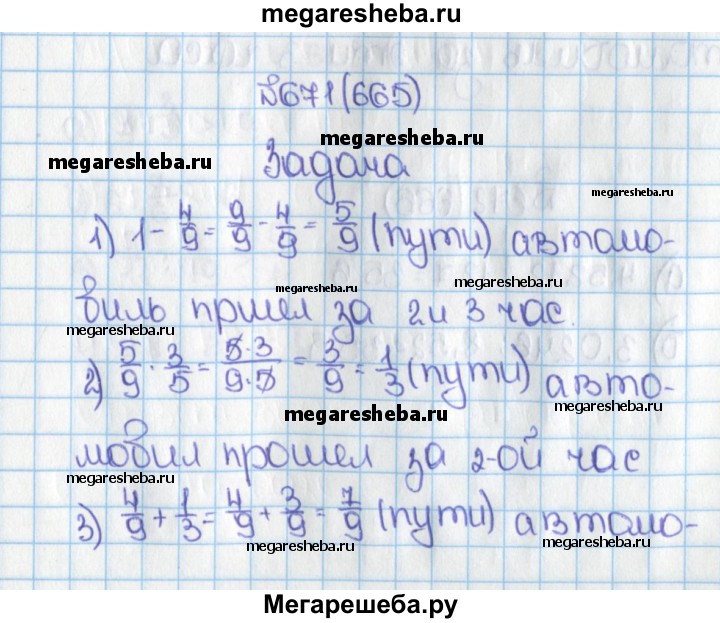 megaresheba.ru
№671(665)
megaresheba.ru
megaresheba.ru
Задача
megaresheba.ru
1) 1 - 4/9 = 9/9 - 4/9 = 5/9 (пути) автомо-
megaresheba.ru
megaresheba.ru
виль пришел за 2 и 3 час.
megaresheba.ru
megaresheba.ru
2) 5/9 · 3/5 = 5·3/9·5 = 3/9 = 1/3 (пути) авто-
megaresheba.ru
megaresheba.ru
мобил прошел за 2-ой час
megaresheba.ru
3) 4/9 + 1/3 = 4/9 + 3/9 = 7/9 (пути) автомо-
megaresheba.ru
megaresheba.ru
Мегарешеба.ру